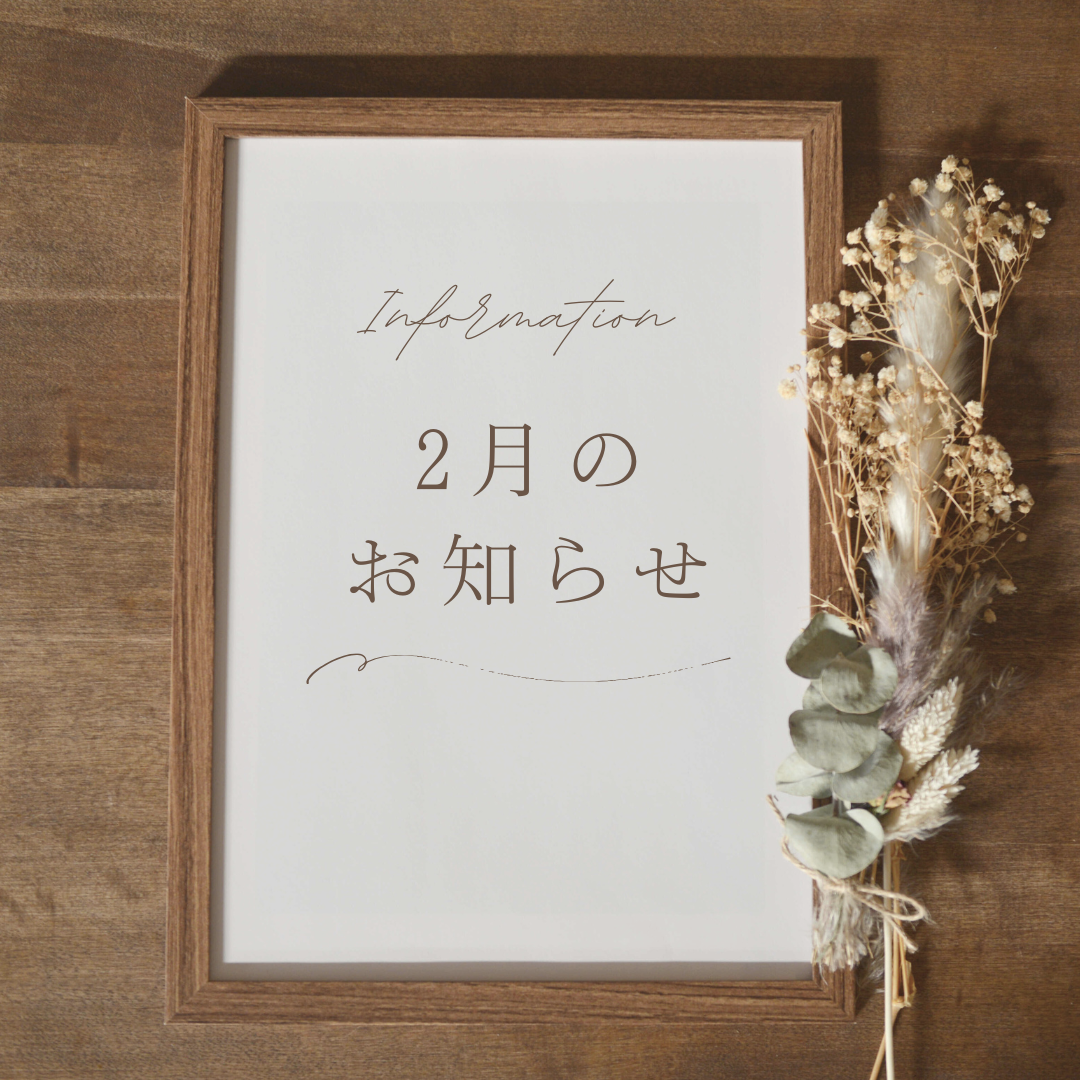 Information
2月の
お知らせ